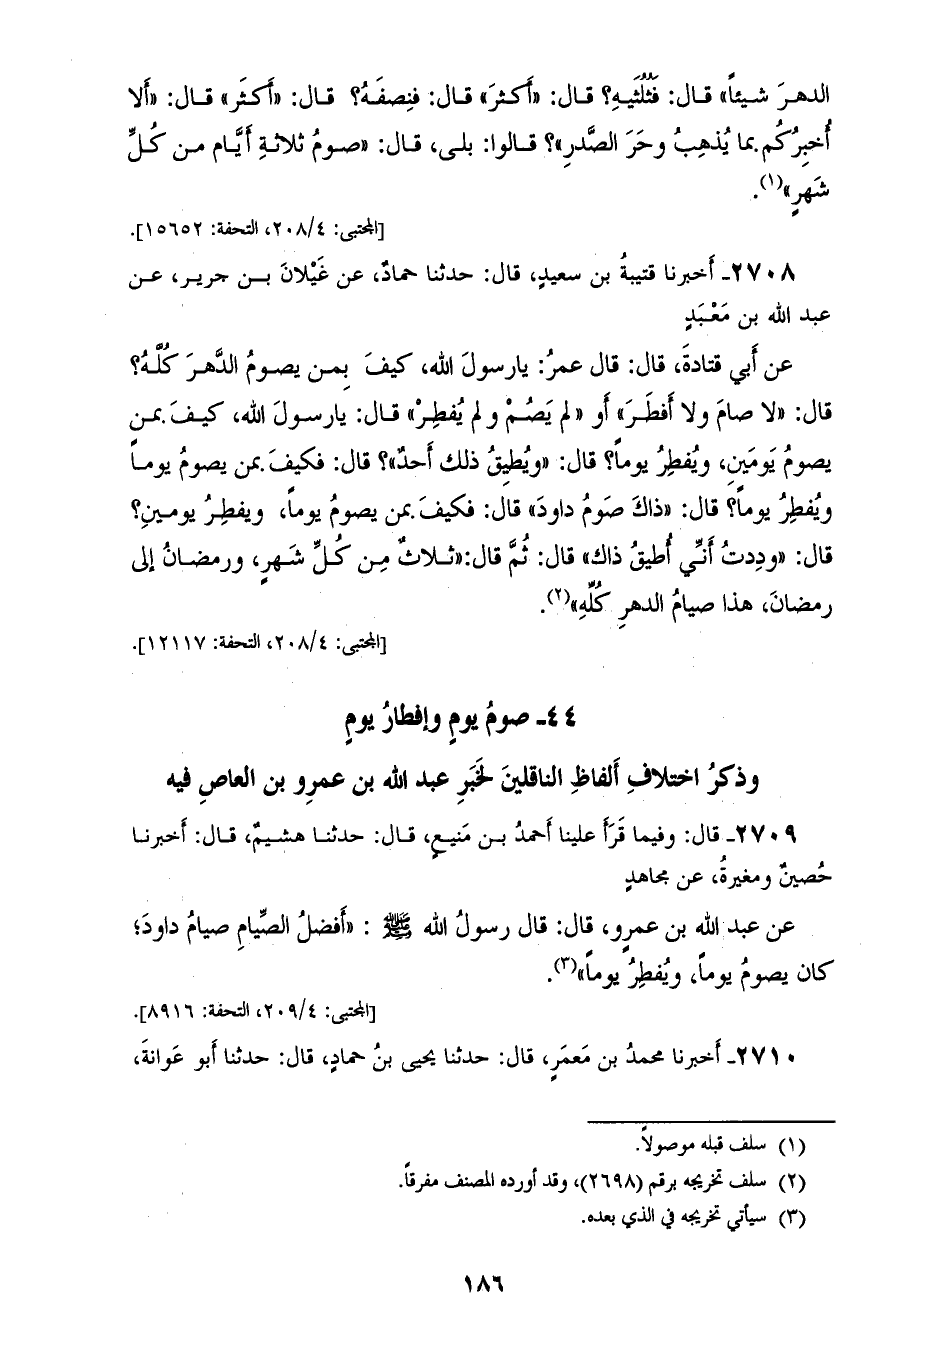 الدهرَ شيئاً» قال: فثُلُثَيهِ؟ قال: «أَكثرَ» قال: فنِصفَهُ؟ قال: «أَكثَر» قال: «أَلا
أُخبِرُكُم بما يُذهِبُ وحَرَ الصَّدرِ»؟ قالوا: بلى، قال: «صومُ ثلاثةِ أَيَّام من كُلِّ
شَهرٍ»(١).
[المجتبى: ٢٠٨/٤، التحفة: ١٥٦٥٢].
٢٧٠٨ـ أَخبرنا قتيبةُ بن سعيدٍ، قال: حدثنا حمادٌ، عن غَيْلانَ بن جرير، عن
عبد الله بن مَعْبَدٍ
عن أَبي قتادةَ، قال: قال عمرُ: يارسولَ الله، كيفَ بِمن يصومُ الدَّهرَ كُلَّهُ؟
قال: «لا صامَ ولا أَفطَرَ» أو «لم يَصُمْ و لم يُفطِرْ» قال: يارسولَ الله، كيفَ بمن
يصومُ يَومَينِ، ويُفطِرُ يوماً؟ قال: «ويُطِيقُ ذلك أَحدٌ»؟ قال: فكيفَ بمن يصومُ يوماً
ويُفطِرُ يوماً؟ قال: «ذاكَ صَومُ داودَ» قال: فكيفَ بمن يصومُ يوماً، ويفطِرُ يومينِ؟
قال: «ودِدتُ أَنِّي أُطيقُ ذاك» قال: ثُمَّ قال:«ثلاثٌ مِن كُلِّ شَهرٍ، ورمضانُ إلى
رمضانَ، هذا صيامُ الدهرِ كُلِّهِ»(٢).
[المجتبى: ٢٠٨/٤، التحفة: ١٢١١٧].
٤٤ـ صومُ يومٍ وإفطارُ يومٍ
وذكرُ اختلافِ ألفاظِ الناقلينَ لخَبَرِ عبد الله بن عمرِو بن العاصِ فيه
٢٧٠٩ـ قال: وفيما قَرَأَ علينا أَحمدُ بن مَنيعٍ، قال: حدثنا هشيمٌ، قال: أَخبرنا
حُصينٌ ومغيرةُ، عن مجاهدٍ
عن عبد الله بن عمرٍو، قال: قال رسولُ الله ﷺ : «أَفضلُ الصِّيامِ صيامُ داودَ؛
كان يصومُ يوماً، ويُفطِرُ يوماً»(٣).
[المجتبى: ٢٠٩/٤، التحفة: ٨٩١٦].
٢٧١٠ـ أَخبرنا محمدُ بن مَعمَرٍ، قال: حدثنا يحيى بنُ حمادٍ، قال: حدثنا أَبو عَوانةَ،
(١) سلف قبله موصولاً.
(٢) سلف تخريجه برقم (٢٦٩٨)، وقد أورده المصنف مفرقاً.
(٣) سيأتي تخريجه في الذي بعده.
١٨٦